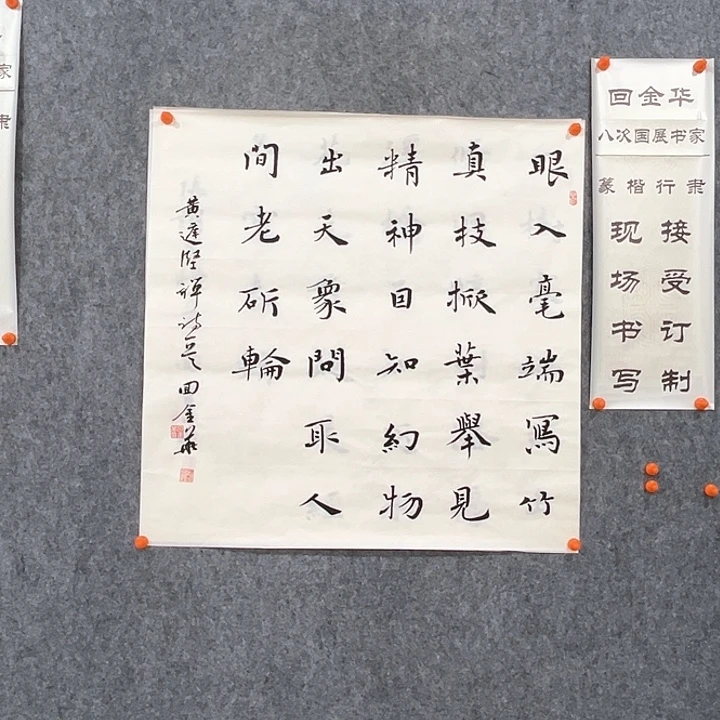 眼入毫端寫竹
真枝掀葉舉見
精神囙知幻物
出天象問取人
間老斫輪
黄庭堅禪詩 回金華
回金华
八次国展书家
篆楷行隶
现场书写
接受订制
家
隶